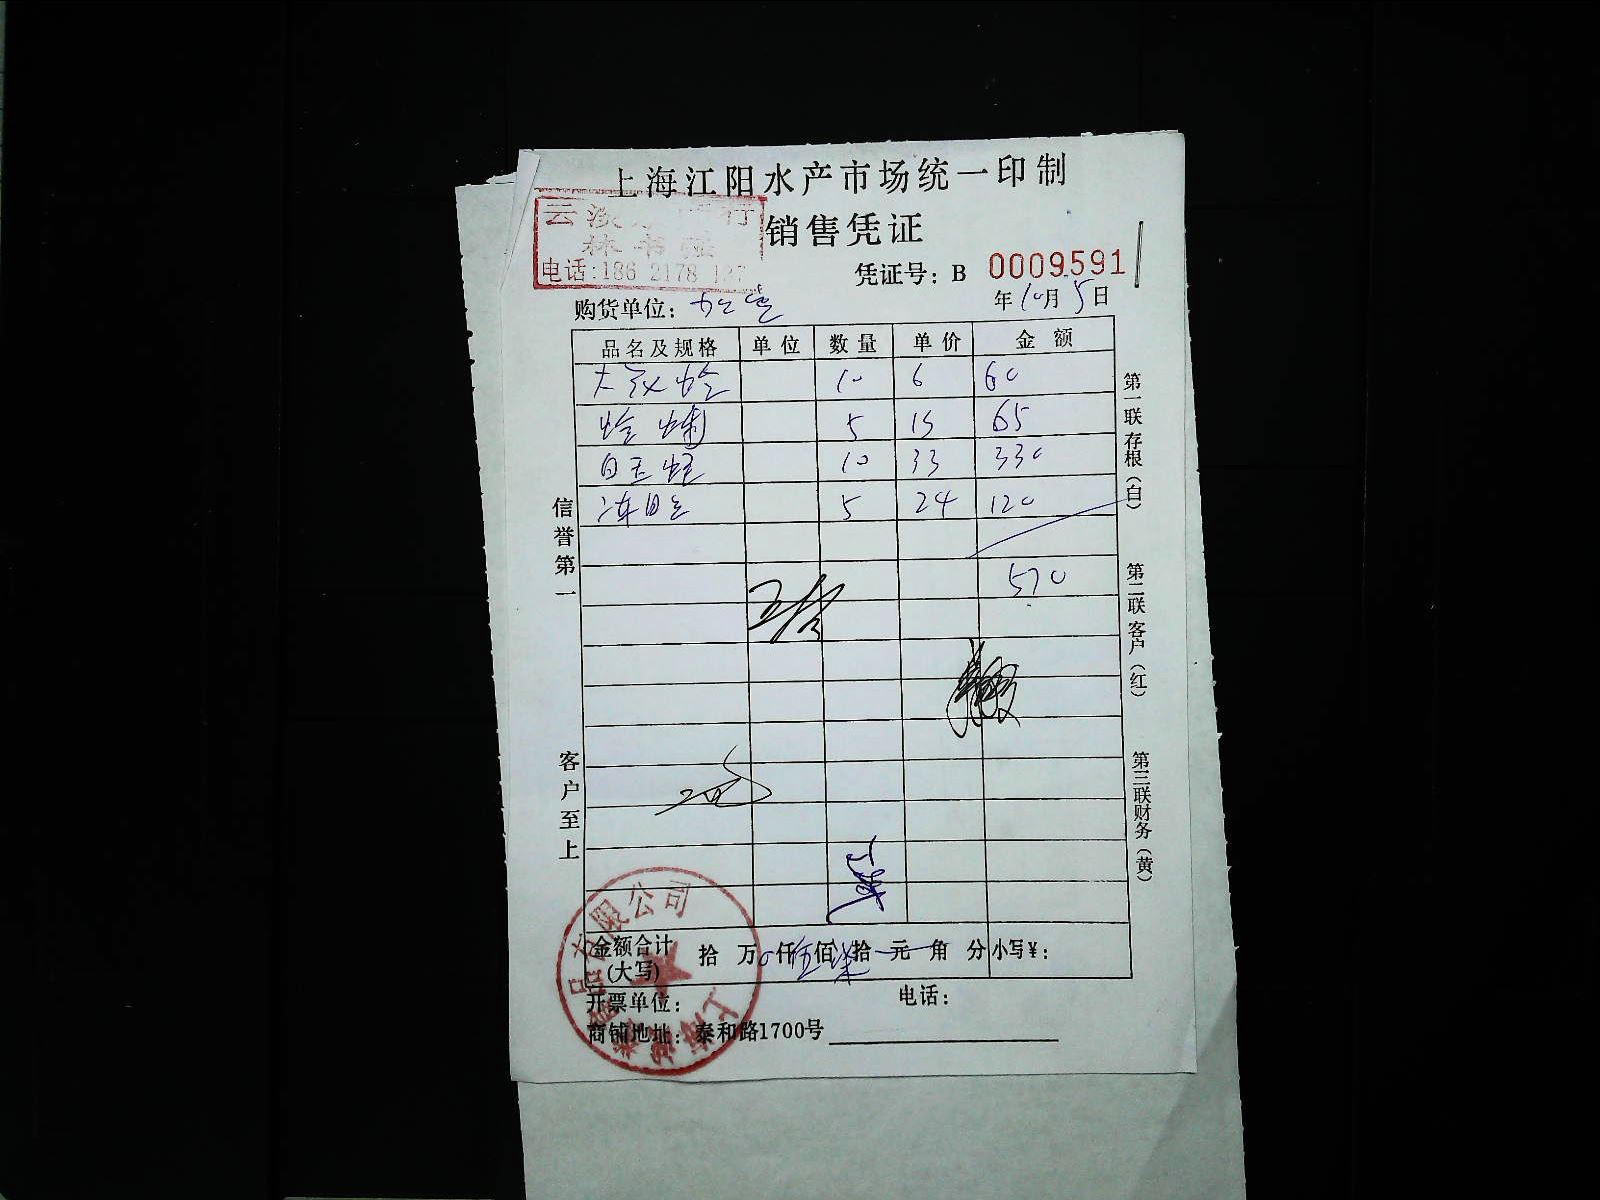 上海江阳水产市场统一印制
销售凭证
云
林书
电话:186 2178
凭证号: B 0009591
购货单位:
年10月5日
品名及规格 单位 数量 单价 金额
大 蛤 10 6 60
蛤 5 13 65
白玉蛏 10 33 330
冻 5 24 120
570
信誉第一
客户至上
第一联存根(白)
第二联客户(红)
第三联财务(黄)
品有限公司
上海
金额合计(大写) 拾 万 0 仟 伍 佰 柒 拾 元 角 分 小写¥:
开票单位: 电话:
商铺地址: 泰和路1700号